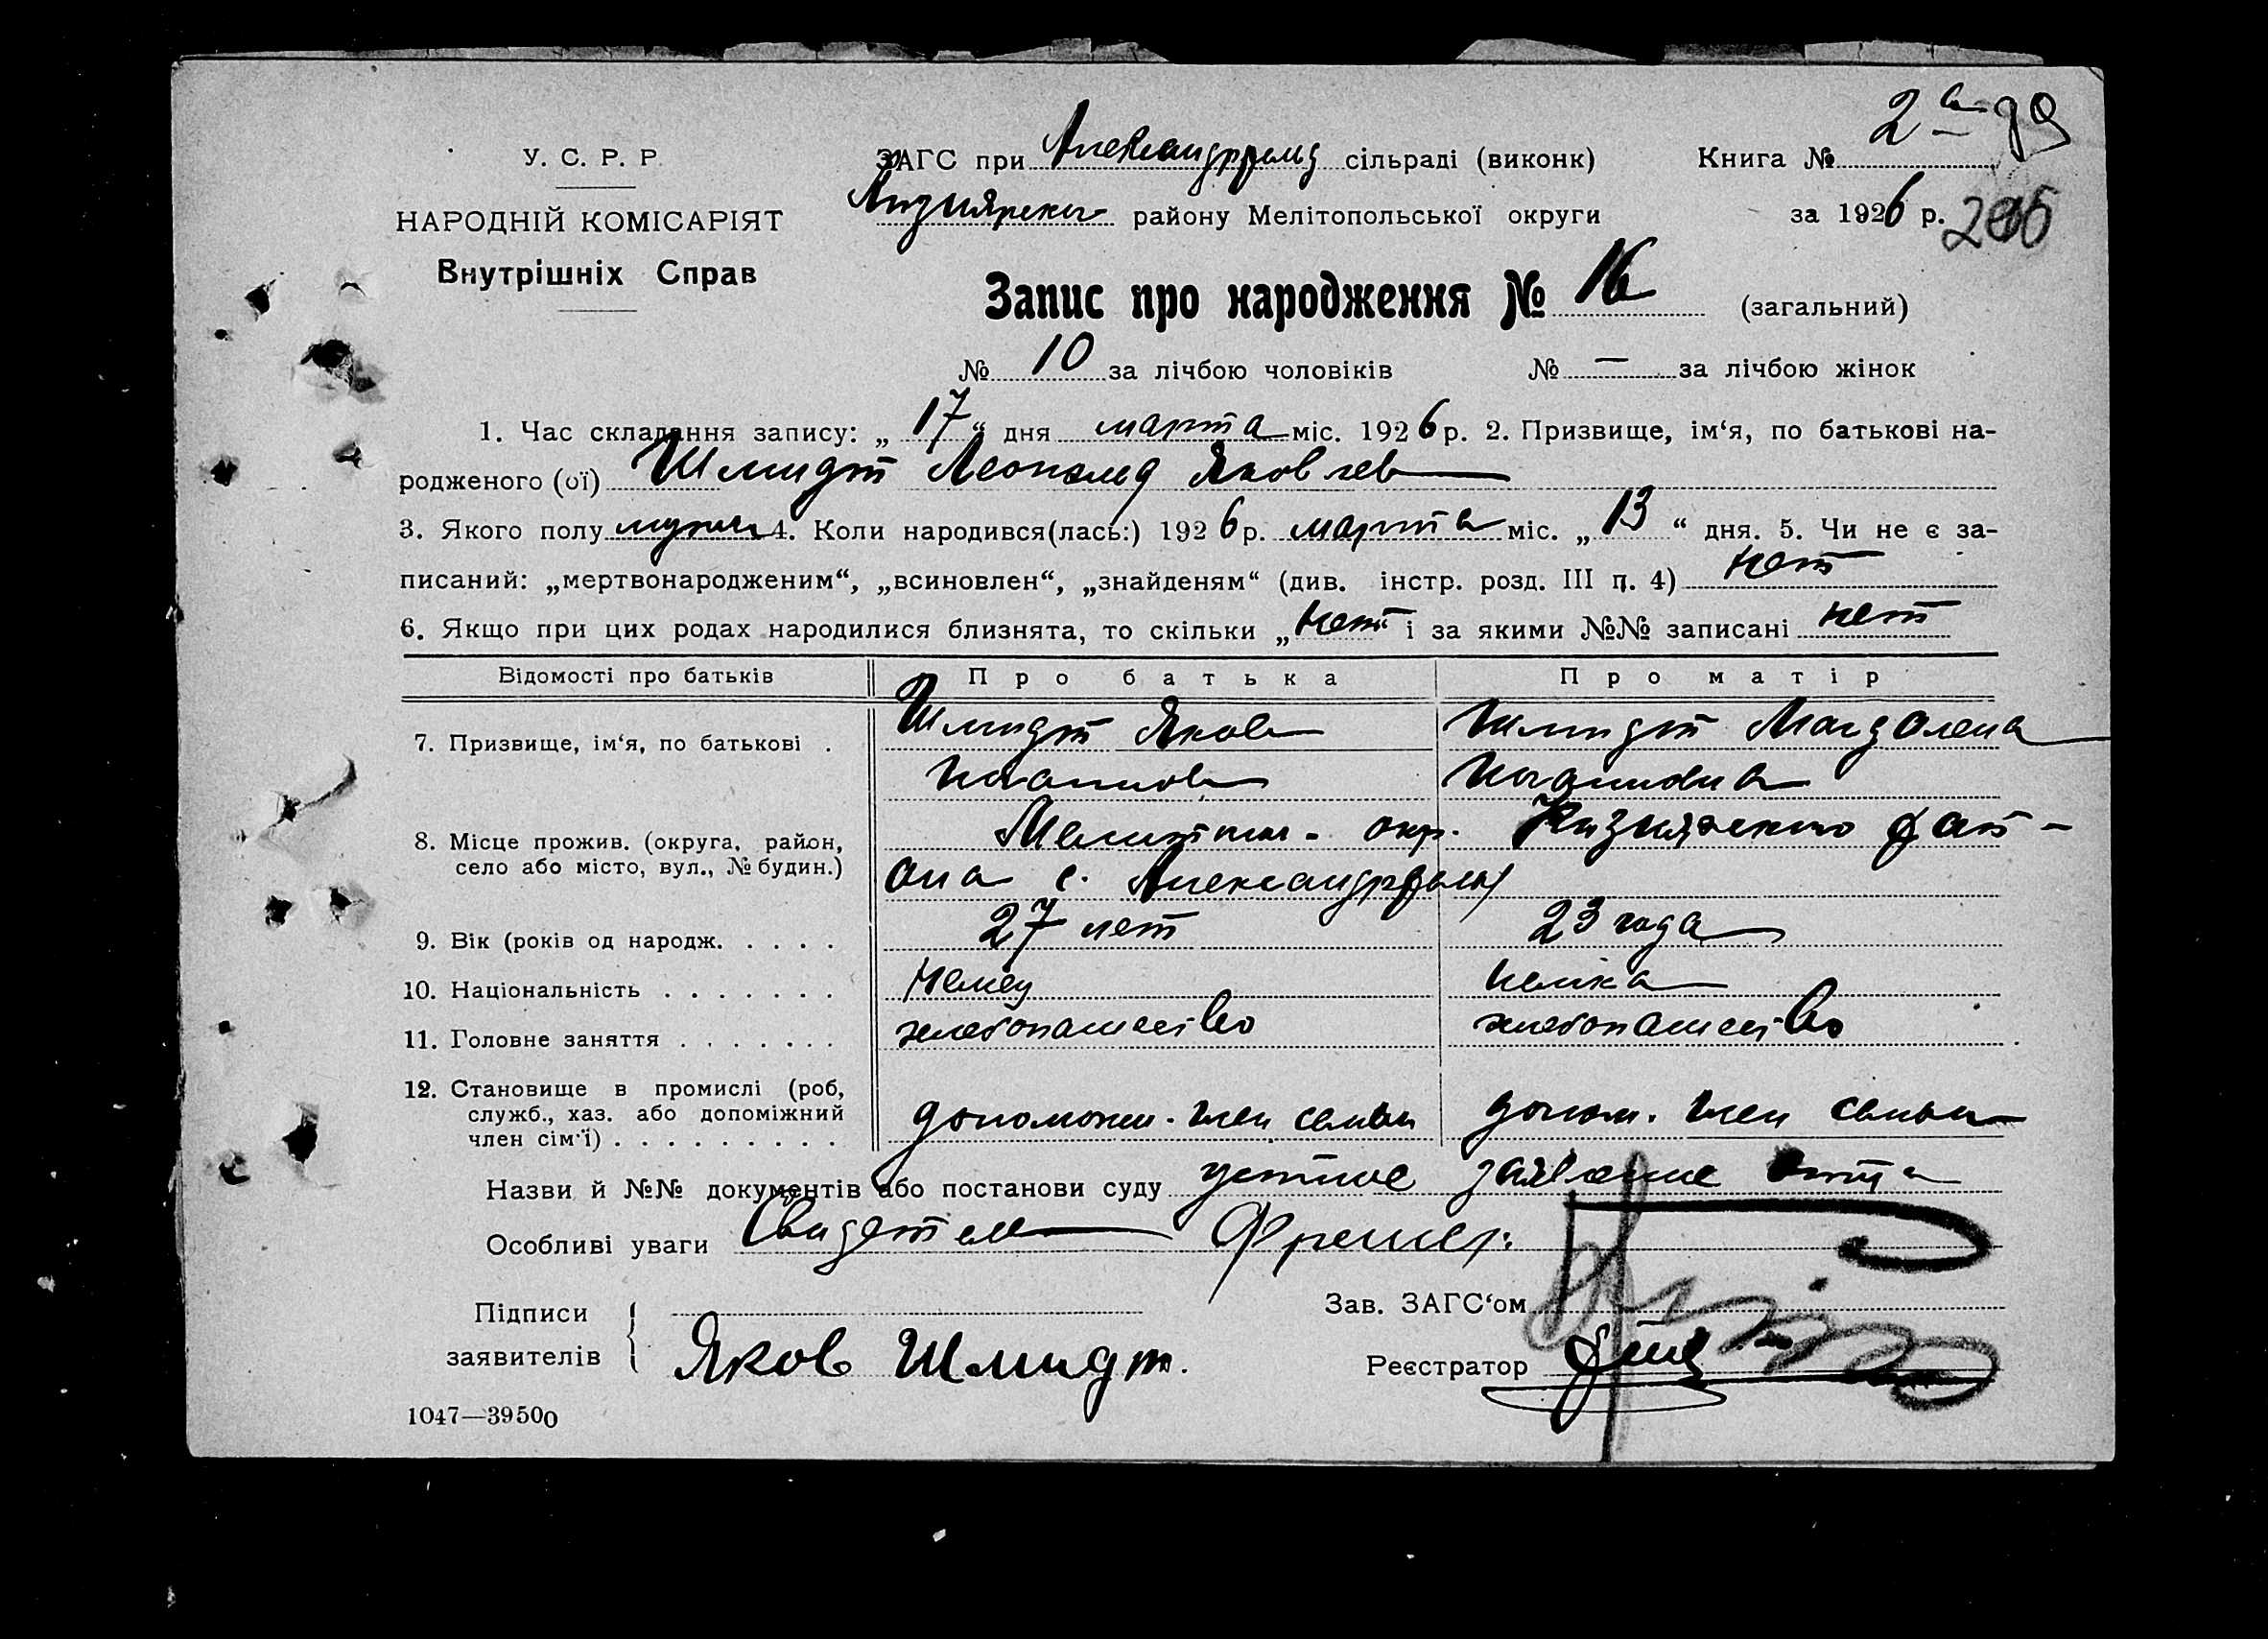 У. С. Р. Р.
НАРОДНІЙ КОМІСАРІЯТ
Внутрішніх Справ
ЗАГС при Александрфельд сільраді (виконк)
району Мелітопольської округи
Книга № 2
за 1926 р.
Запис про народження № 16 (загальний)
№ 10 за лічбою чоловіків № — за лічбою жінок
1. Час складання запису: „17“ дня марта міс. 1926 р. 2. Призвище, ім‘я, по батькові на-
родженого (ої) Шмидт Леопольд Яковлев
3. Якого полу мужск 4. Коли народився(лась:) 1926 р. марта міс. „13“ дня. 5. Чи не є за-
писаний: „мертвонародженим“, „всиновлен“, „знайденям“ (див. інстр. розд. III п. 4) нет
6. Якщо при цих родах народилися близнята, то скільки „нет“ і за якими №№ записані нет
Відомості про батьків Про батька Про матір
7. Призвище, ім‘я, по батькові . Шмидт Яков Шмидт Магдалена
8. Місце прожив. (округа, район, Мелитоп. окр. Кизиярского рай-
село або місто, вул., № будин.) она с. Александрфельд
9. Вік (років од народж. . . . . 27 лет 23 года
10. Національність . . . . . . . Немец немка
11. Головне заняття . . . . . . . хлебопашество хлебопашество
12. Становище в промислі (роб,
служб., хаз. або допоміжний допоможн. член семьи допом. член семьи
член сім‘ї) . . . . . . . . .
Назви й №№ документів або постанови суду устное заявление отца
Особливі уваги Свидетели
Підписи
заявителів Яков Шмидт.
Зав. ЗАГС‘ом
Реєстратор
1047—39500